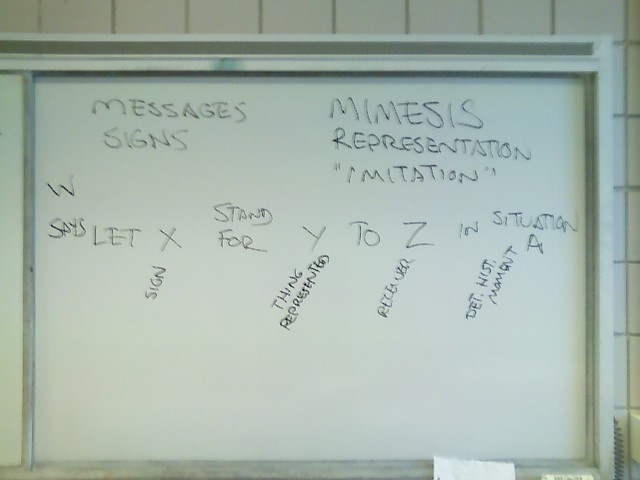 MESSAGES
SIGNS
MIMESIS
REPRESENTATION
"IMITATION"
W
SAYS LET X STAND FOR Y TO Z IN SITUATION A
SIGN
THING
REPRESENTED
RECEIVER
DET. HIST.
MOMENT